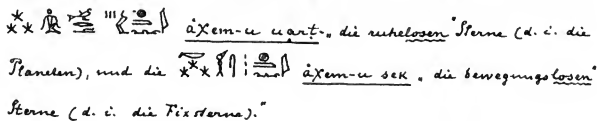 åχem-u uart „die ruhelosen" Sterne (d. i. die
Planeten), und die åχem-u sek „die bewegungslosen"
Sterne (d. i. die Fixsterne)."